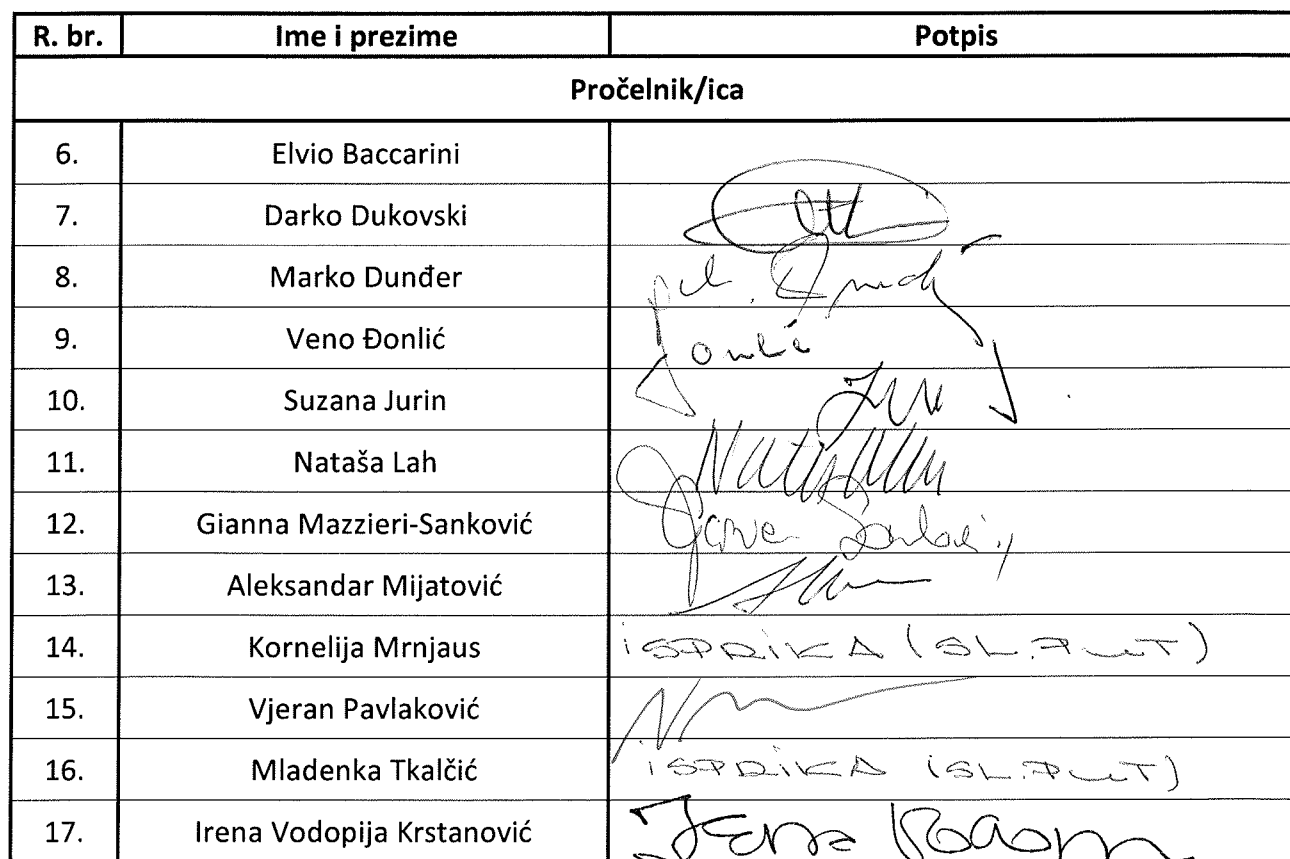 R. br. Ime i prezime Potpis
Pročelnik/ica
6. Elvio Baccarini
7. Darko Dukovski
8. Marko Dunđer
9. Veno Đonlić
10. Suzana Jurin
11. Nataša Lah
12. Gianna Mazzieri-Sanković
13. Aleksandar Mijatović
14. Kornelija Mrnjaus ISPRIKA (SL. PUT)
15. Vjeran Pavlaković
16. Mladenka Tkalčić ISPRIKA (SL. PUT)
17. Irena Vodopija Krstanović